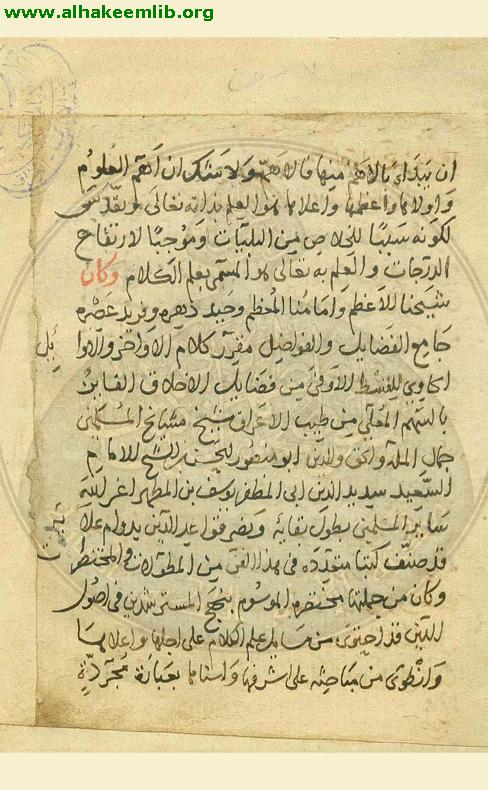 www.alhakeemlib.org
ان يبتداء بالاهم منها فالاهم ولا شك ان اهم العلوم
واولاها واعظمها واعلاها هو العلم بذاته تعالى وتقدس
لكونه سببا للخلاص من البليات وموجبا لارتفاع
الدرجات والعلم به تعالى هو المسمى بعلم الكلام وكان
شيخنا الاعظم وامامنا المعظم وحيد دهره وفريد عصره
جامع الفضايل والفواضل مقرر كلام الاواخر والاوا
ئل
الحاوي للقسط الاوفى من فضايل الاخلاق الفايز
بالسهم المعلى من طيب الاعراق شيخ مشايخ المسلمين
جمال الملة والحق والدين ابو منصور الحسن بن الشيخ الامام
السعيد سديد الدين ابى المظفر يوسف بن المطهر اعز الله
ساير المسلمين بطول بقائه ونصر قواعد الدين بدوام علا
ئه
قد صنف كتبا متعدده فى هذا الفن من المطولات والمختصرات
وكان من جملتها مختصره الموسوم بنهج المسترشدين فى اصول
الدين قد احتوى من مسايل علم الكلام على اجلها واعلاها
وانطوى من مباحثه على اشرفها واسناها بعبارة مجردة